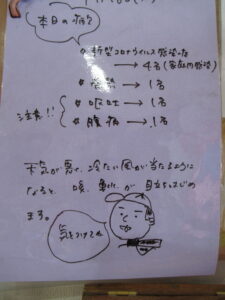 本日の病欠
◎ 新型コロナウイルス感染の為
→ 4名(家庭内感染)
→ 1名
注意!!
〃 嘔吐 → 1名
〃 腹痛 → 1名
天気が悪く、冷たい風が当たるように
なると、咳、鼻水、が目立ちはじめ
ます。
気をつけてね